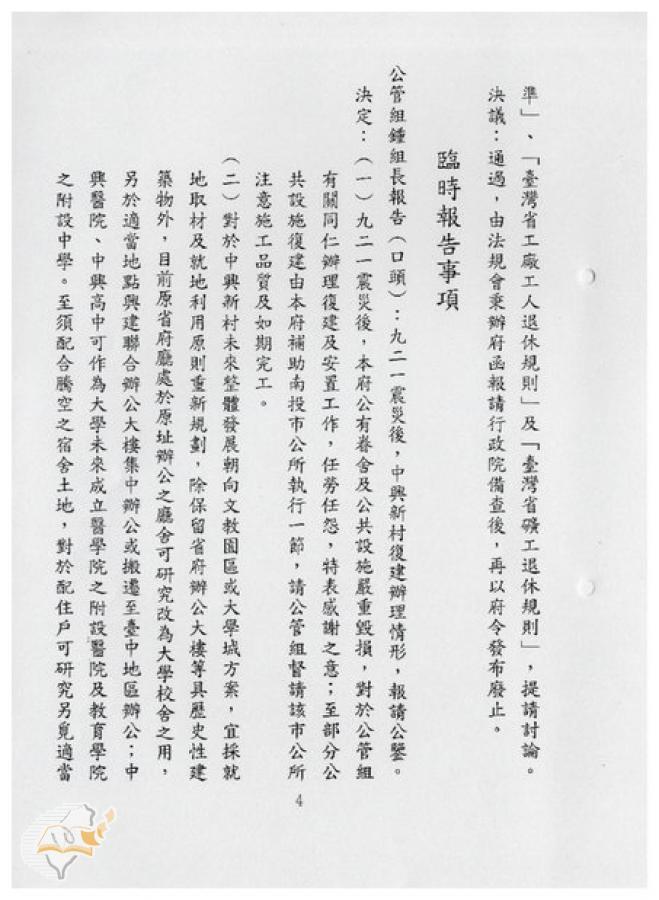 準」、「臺灣省工廠工人退休規則」及「臺灣省礦工退休規則」，提請討論。
決議：通過，由法規會秉辦府函報請行政院備查後，再以府令發布廢止。
臨時報告事項
公管組鍾組長報告（口頭）：九二一震災後，中興新村復建辦理情形，報請公鑒。
決定：（一）九二一震災後，本府公有眷舍及公共設施嚴重毀損，對於公管組
有關同仁辦理復建及安置工作，任勞任怨，特表感謝之意；至部分公
共設施復建由本府補助南投市公所執行一節，請公管組督請該市公所
注意施工品質及如期完工。
（二）對於中興新村未來整體發展朝向文教園區或大學城方案，宜採就
地取材及就地利用原則重新規劃，除保留省府辦公大樓等具歷史性建
築物外，目前原省府廳處於原址辦公之廳舍可研究改為大學校舍之用，
另於適當地點興建聯合辦公大樓集中辦公或搬遷至臺中地區辦公；中
興醫院、中興高中可作為大學未來成立醫學院之附設醫院及教育學院
之附設中學。至須配合騰空之宿舍土地，對於配住戶可研究另覓適當
4